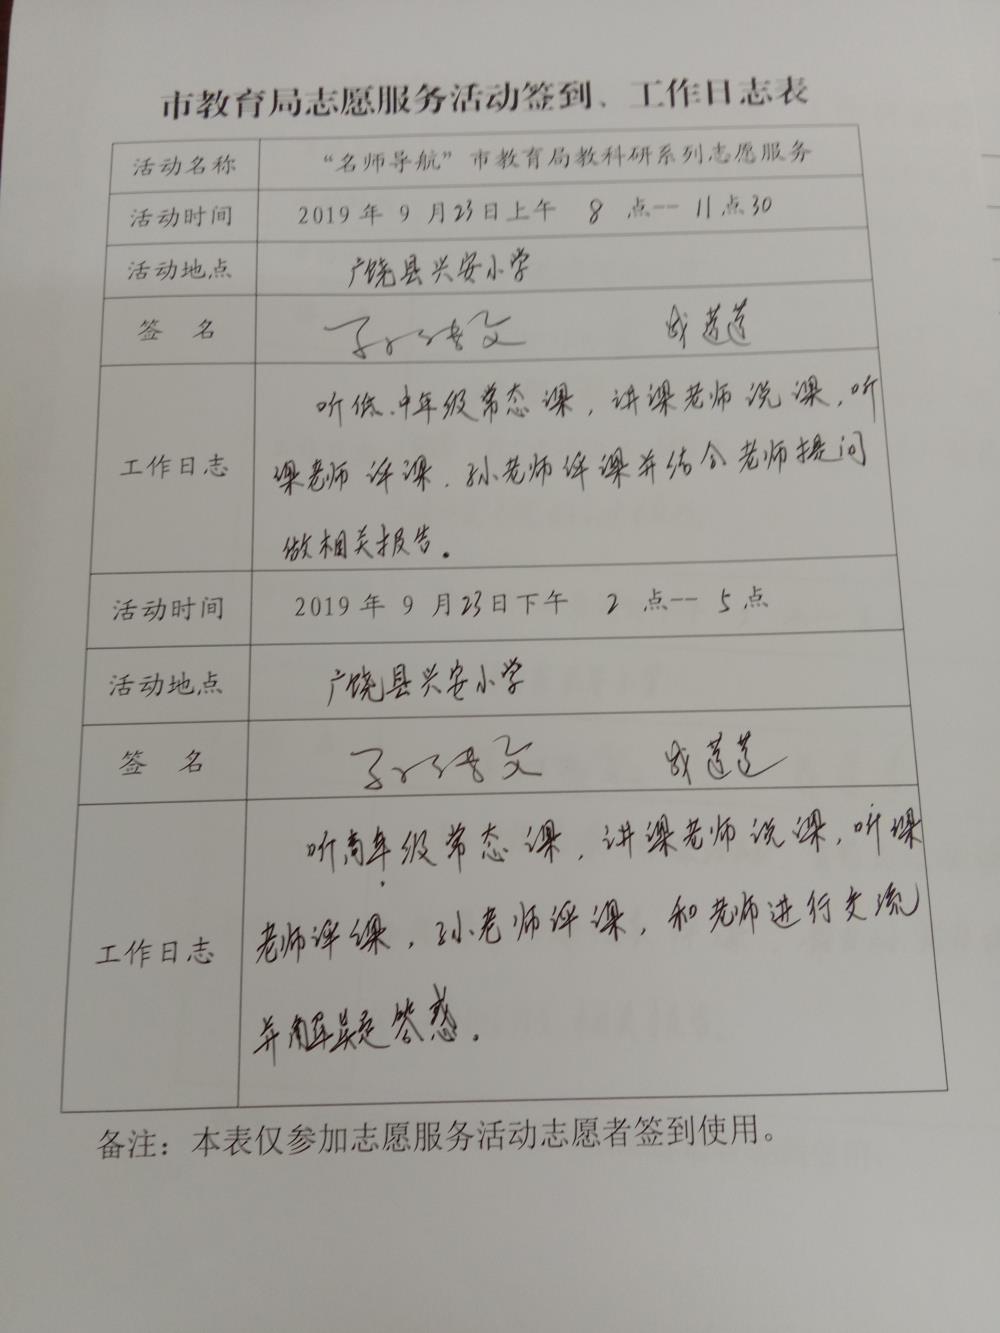 市教育局志愿服务活动签到、工作日志表
活动名称 “名师导航”市教育局教科研系列志愿服务
活动时间 2019年 9 月23日上午 8 点-- 11点30
活动地点 广饶县兴安小学
签 名 成莲莲
听低、中年级常态课，讲课老师说课，听
工作日志 课老师评课，孙老师评课并结合老师提问
做相关报告。
活动时间 2019年 9 月23日下午 2 点-- 5点
活动地点 广饶县兴安小学
签 名 成莲莲
听高年级常态课，讲课老师说课，听课
工作日志 老师评课，孙老师评课，和老师进行交流
并解疑答惑。
备注：本表仅参加志愿服务活动志愿者签到使用。